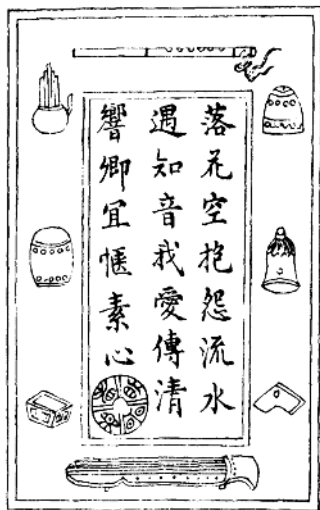 落花空抱怨流水
遇知音我愛傳清
響卿宜愜素心